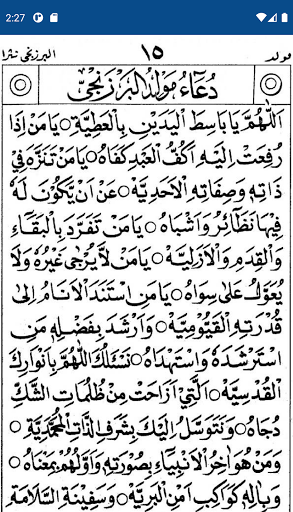 2:27
البرزنجي نثرا ١٥ مولد
دُعَاءُ مَوْلِدِ الْبَرْزَنْجِيّ
اَللّٰهُمَّ يَا بَاسِطَ الْيَدَيْنِ بِالْعَطِيَّةِ ○ يَا مَنْ اِذَا
رُفِعَتْ اِلَيْهِ اَكُفُّ الْعَبْدِ كَفَاهُ ○ يَا مَنْ تَنَزَّهَ فِيْ
ذَاتِهٖ وَصِفَاتِهِ الْاَحَدِيَّةْ ○ عَنْ اَنْ يَّكُوْنَ لَهٗ
فِيْهَا نَظَآئِرُ وَاَشْبَاهُ ○ يَا مَنْ تَفَرَّدَ بِالْبَقَآءِ
وَالْقِدَمِ وَالْاَزَلِيَّةْ ○ يَا مَنْ لَا يُرْجٰى غَيْرُهٗ وَلَا
يُعَوَّلُ عَلٰى سِوَاهُ ○ يَا مَنِ اسْتَنَدَ الْاَنَامُ اِلٰى
قُدْرَتِهِ الْقَيُّوْمِيَّةْ ○ وَاَرْشَدَ بِفَضْلِهٖ مَنِ
اسْتَرْشَدَهٗ وَاسْتَهْدَاهُ ○ نَسْئَلُكَ اللّٰهُمَّ بِاَنْوَارِكَ
الْقُدْسِيَّةْ ○ الَّتِيْ اَزَاحَتْ مِنْ ظُلُمَاتِ الشَّكِّ
دُجَاهُ ○ وَنَتَوَسَّلُ اِلَيْكَ بِشَرَفِ الذَّاتِ الْمُحَمَّدِيَّةِ ○
وَمَنْ هُوَ اٰخِرُ الْاَنْبِيَآءِ بِصُوْرَتِهٖ وَاَوَّلُهُمْ بِمَعْنَاهُ ○
وَبِاٰلِهٖ كَوَاكِبِ اَمْنِ الْبَرِيَّةْ ○ وَسَفِيْنَةِ السَّلَامَةِ